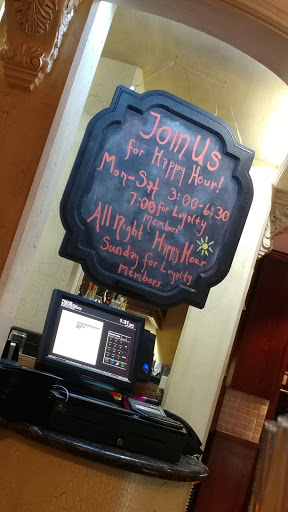 Join Us
for Happy Hour!
Mon-Sat 3:00-6:30
7:00 for Loyalty
Members
All Night Happy Hour
Sunday for Loyalty
Members